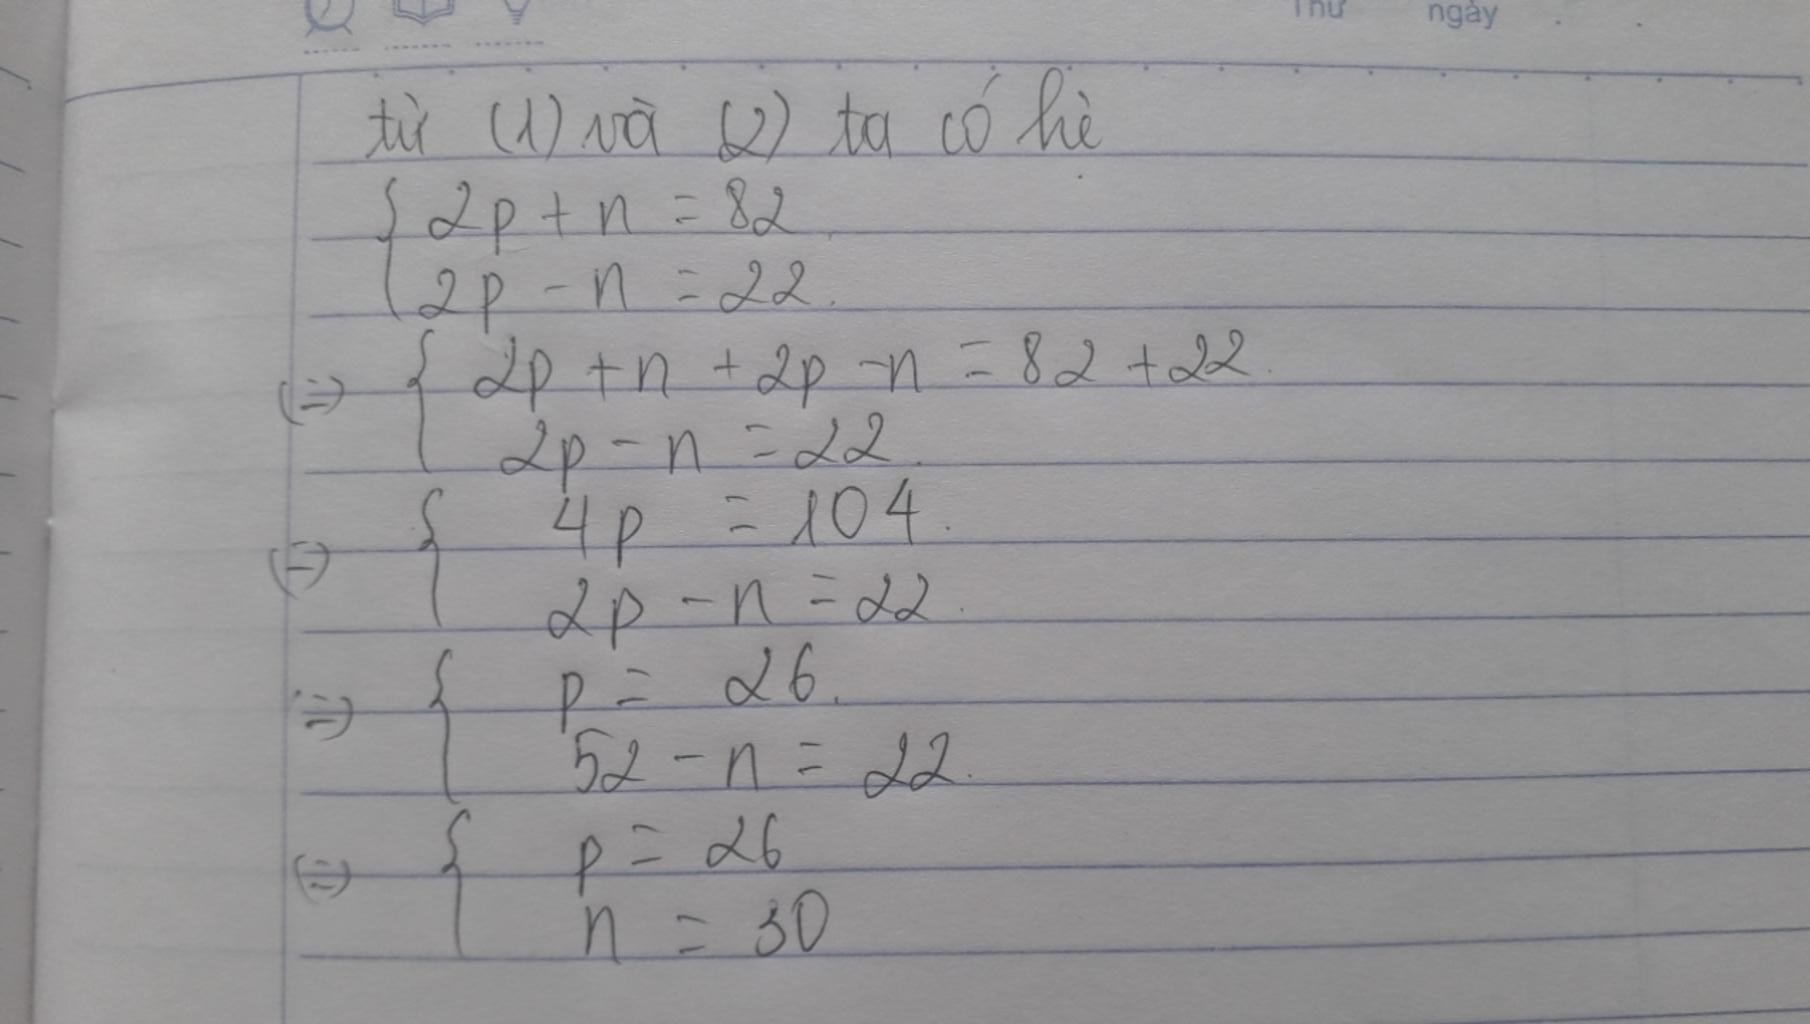 Thứ ngày
từ (1) và (2) ta có hệ
{ 2p + n = 82
2p - n = 22.
(=) { 2p + n + 2p - n = 82 + 22.
2p - n = 22.
(=) { 4p = 104.
2p - n = 22.
(=) { p = 26.
52 - n = 22.
(=) { p = 26
n = 30